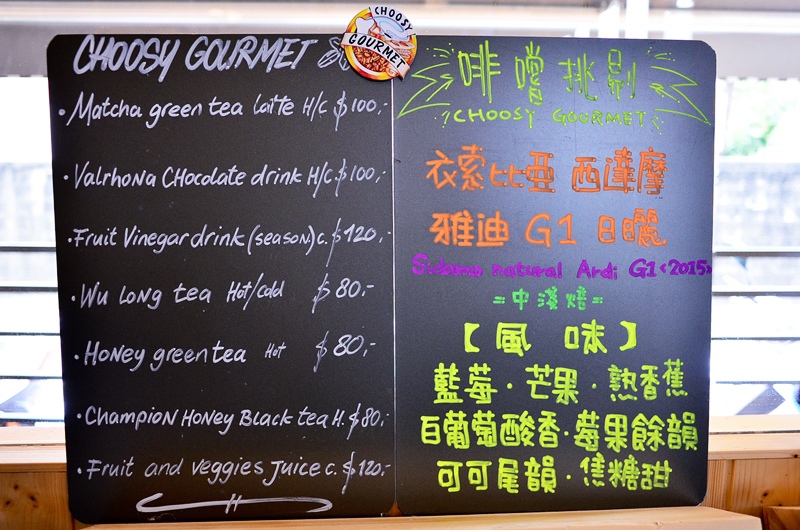 CHOOSY GOURMET
CHOOSY
GOURMET
· Matcha green tea latte H/C $100,-
· Valrhona CHocolate drink H/C. $100,-
· Fruit Vinegar drink (season) c. $120,-
· Wu Long tea Hot/cold $80,-
· Honey green tea Hot $80,-
· Champion Honey Black tea H. $80,-
· Fruit and veggies Juice c. $120,-
啡嚐挑剔
CHOOSY GOURMET
衣索比亞 西達摩
雅迪 G1 日曬
Sidamo natural Ardi G1<2015>
=中淺焙=
【風味】
藍莓·芒果·熟香蕉
白葡萄酸香·莓果餘韻
可可尾韻·焦糖甜